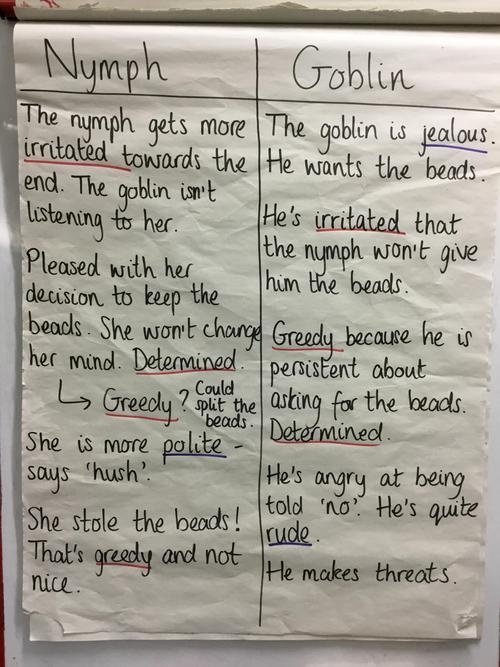 Nymph
The nymph gets more
irritated towards the
end. The goblin isn't
listening to her.
Pleased with her
decision to keep the
beads. She won't change
her mind. Determined.
↳ Greedy? Could
split the
beads.
She is more polite -
says 'hush'.
She stole the beads!
That's greedy and not
nice.
Goblin
The goblin is jealous.
He wants the beads.
He's irritated that
the nymph won't give
him the beads.
Greedy because he is
persistent about
asking for the beads.
Determined.
He's angry at being
told 'no'. He's quite
rude.
He makes threats.